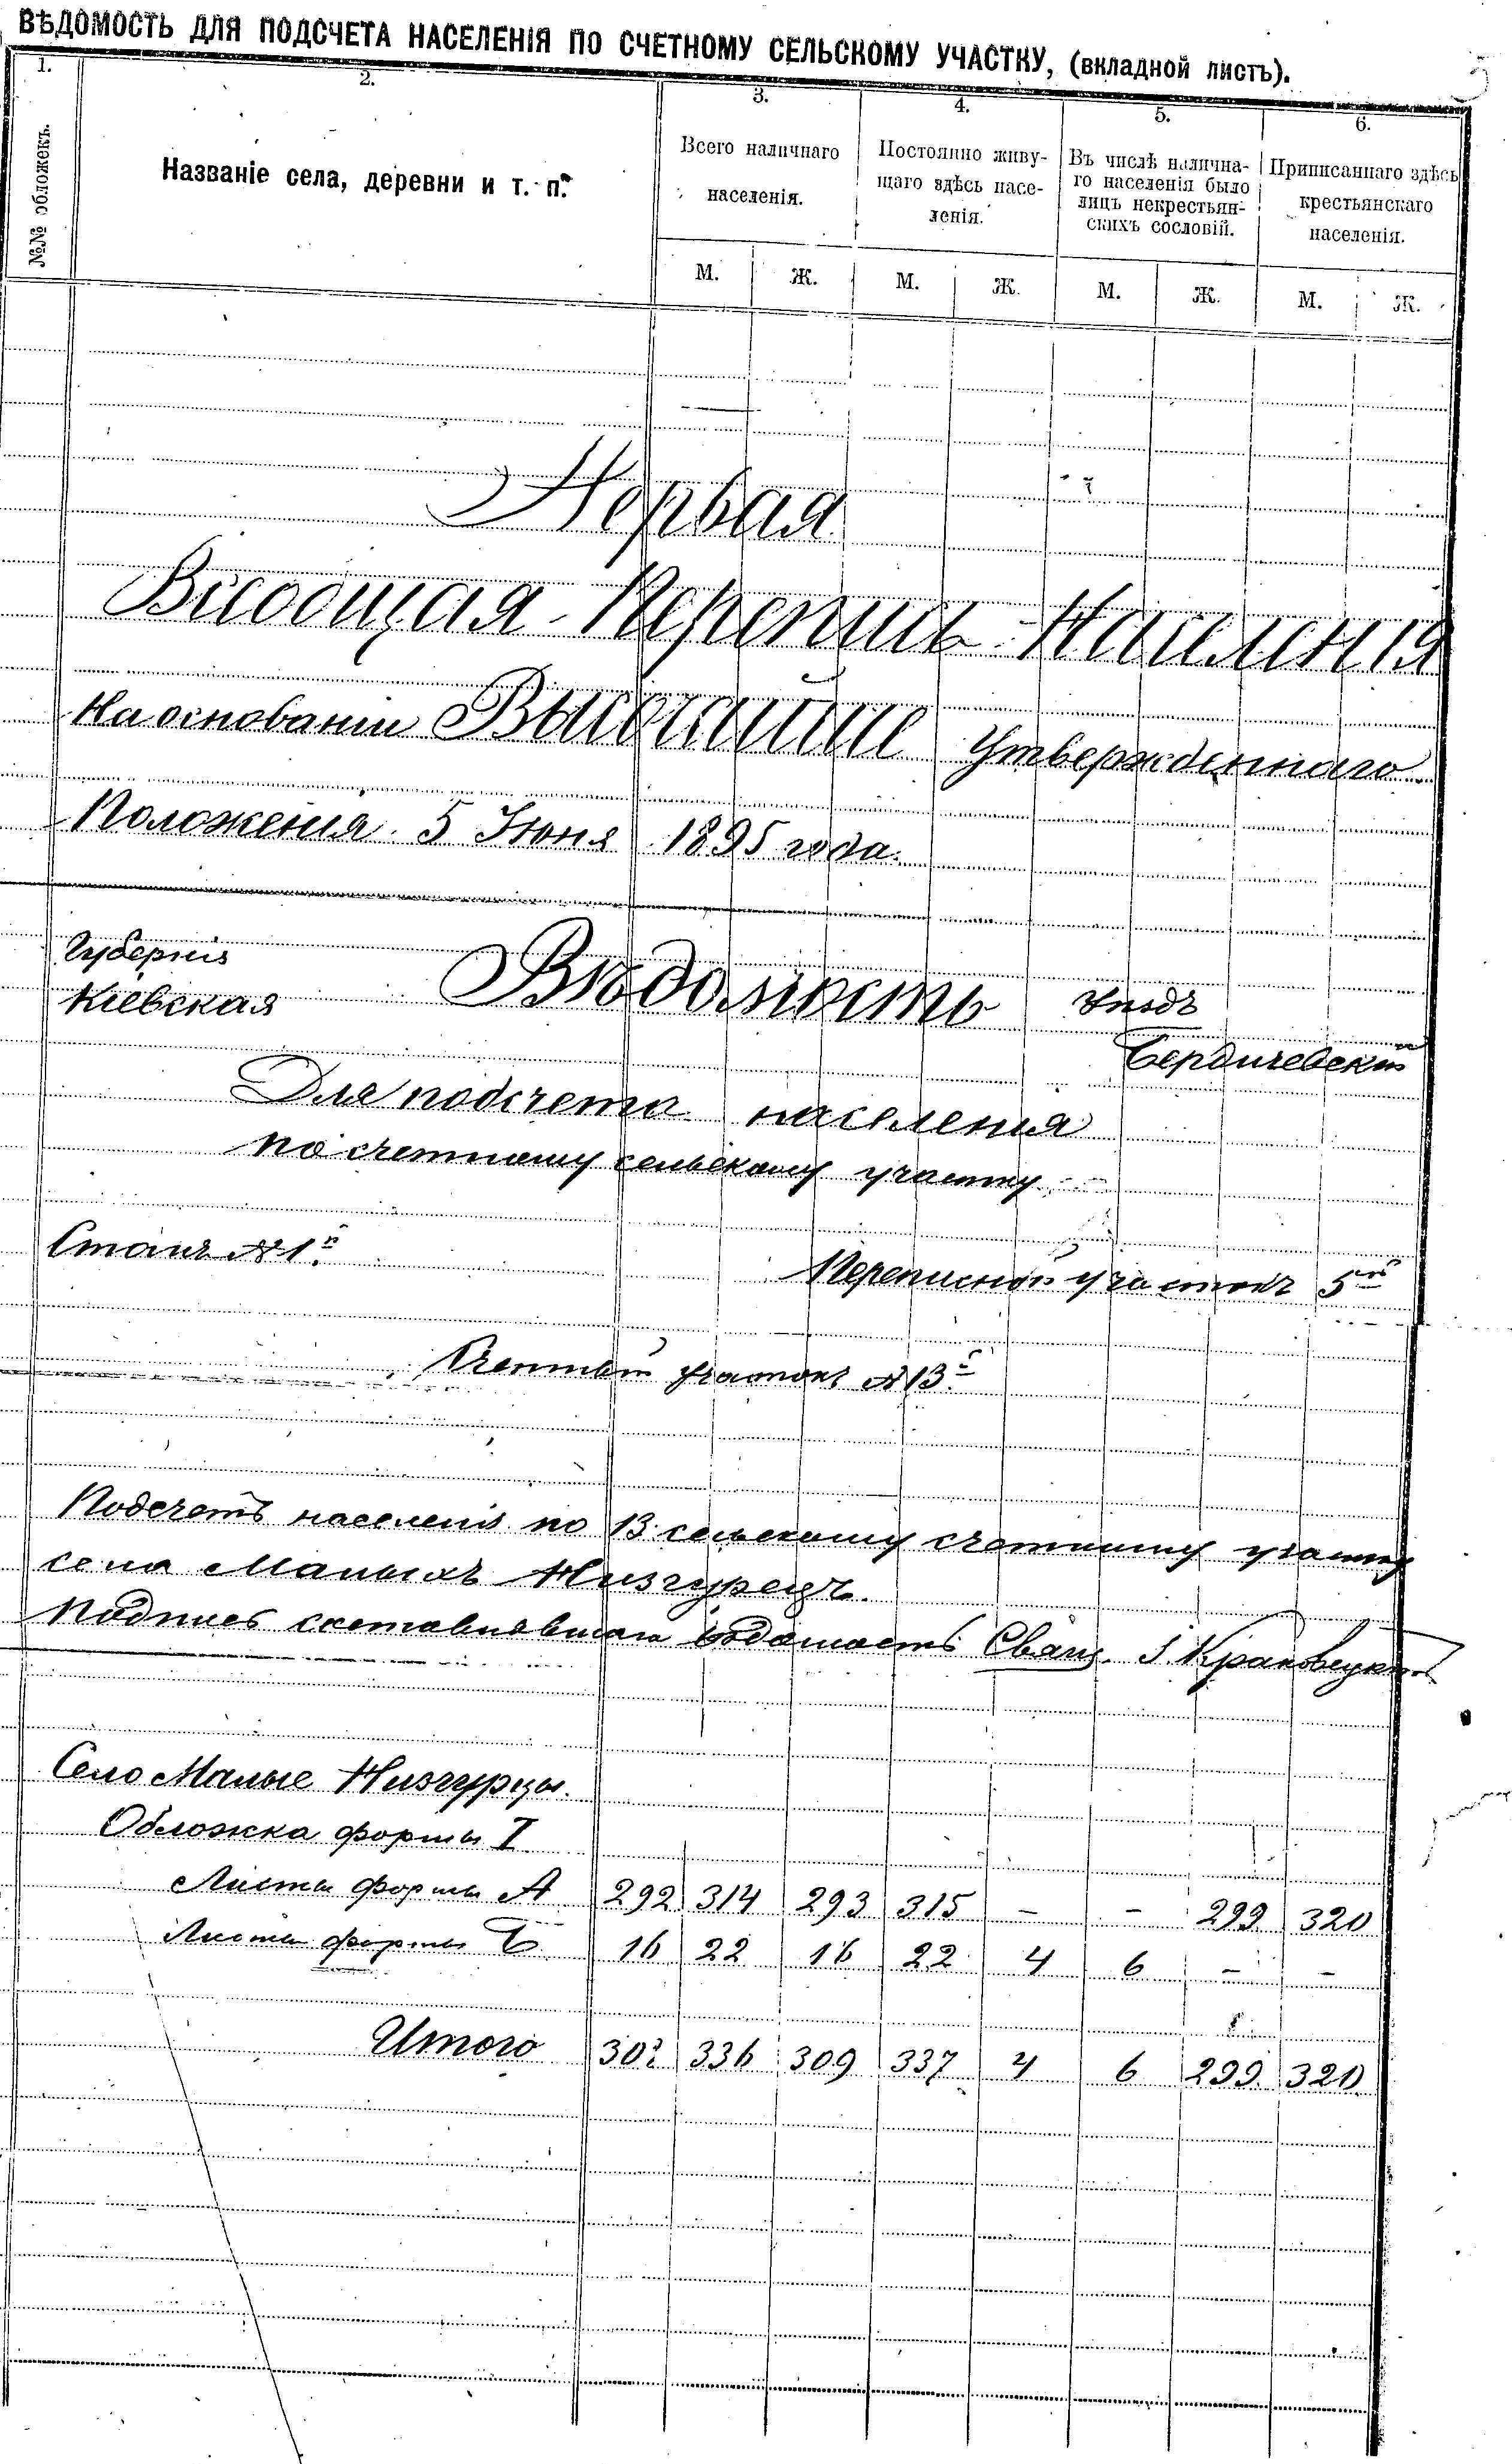 ВѢДОМОСТЬ ДЛЯ ПОДСЧЕТА НАСЕЛЕНІЯ ПО СЧЕТНОМУ СЕЛЬСКОМУ УЧАСТКУ, (вкладной листъ).
1. 2. 3. 4. 5. 6.
№№ обложекъ.
Названіе села, деревни и т. п.
Всего наличнаго
населенія.
Постоянно живу-
щаго здѣсь насе-
ленія.
Въ числѣ налична-
го населенія было
лицъ некрестьян-
скихъ сословій.
Приписаннаго здѣсь
крестьянскаго
населенія.
М. Ж. М. Ж. М. Ж. М. Ж.
Первая
Всеобщая Перепись Населенія
На основаніи Высочайше Утвержденнаго
Положенія 5 Іюня 1895 года.
Губернія
Кіевская
Вѣдомость
Уѣздъ
Бердичевскій
Для подсчета населенія
по счетному сельскому участку
Станъ №1й
Переписной участокъ 5ый
Счетный участокъ №13й
Подсчетъ населенія по 13 сельскому счетному участку
села Малыхъ Низгурецъ.
Подпись составлявшаго вѣдомость Свящ. І. Краковецкій
Село Малые Низгурцы.
Обложка формы I
Листы формы А 292 314 293 315 – – 299 320
Листы формы Б 16 22 16 22 4 6 – –
Итого 336 309 337 4 6 299 320